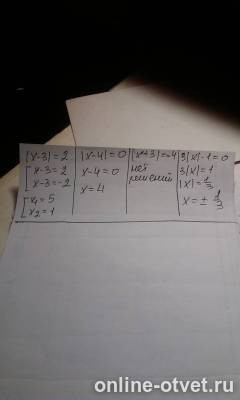 |x-3|=2
[x-3=2
[x-3=-2
[x₁=5
[x₂=1
|x-4|=0
x-4=0
x=4
|x+3|=-4
нет
решений
3|x|-1=0
3|x|=1
|x|=1/3
x=± 1/3
online-otvet.ru